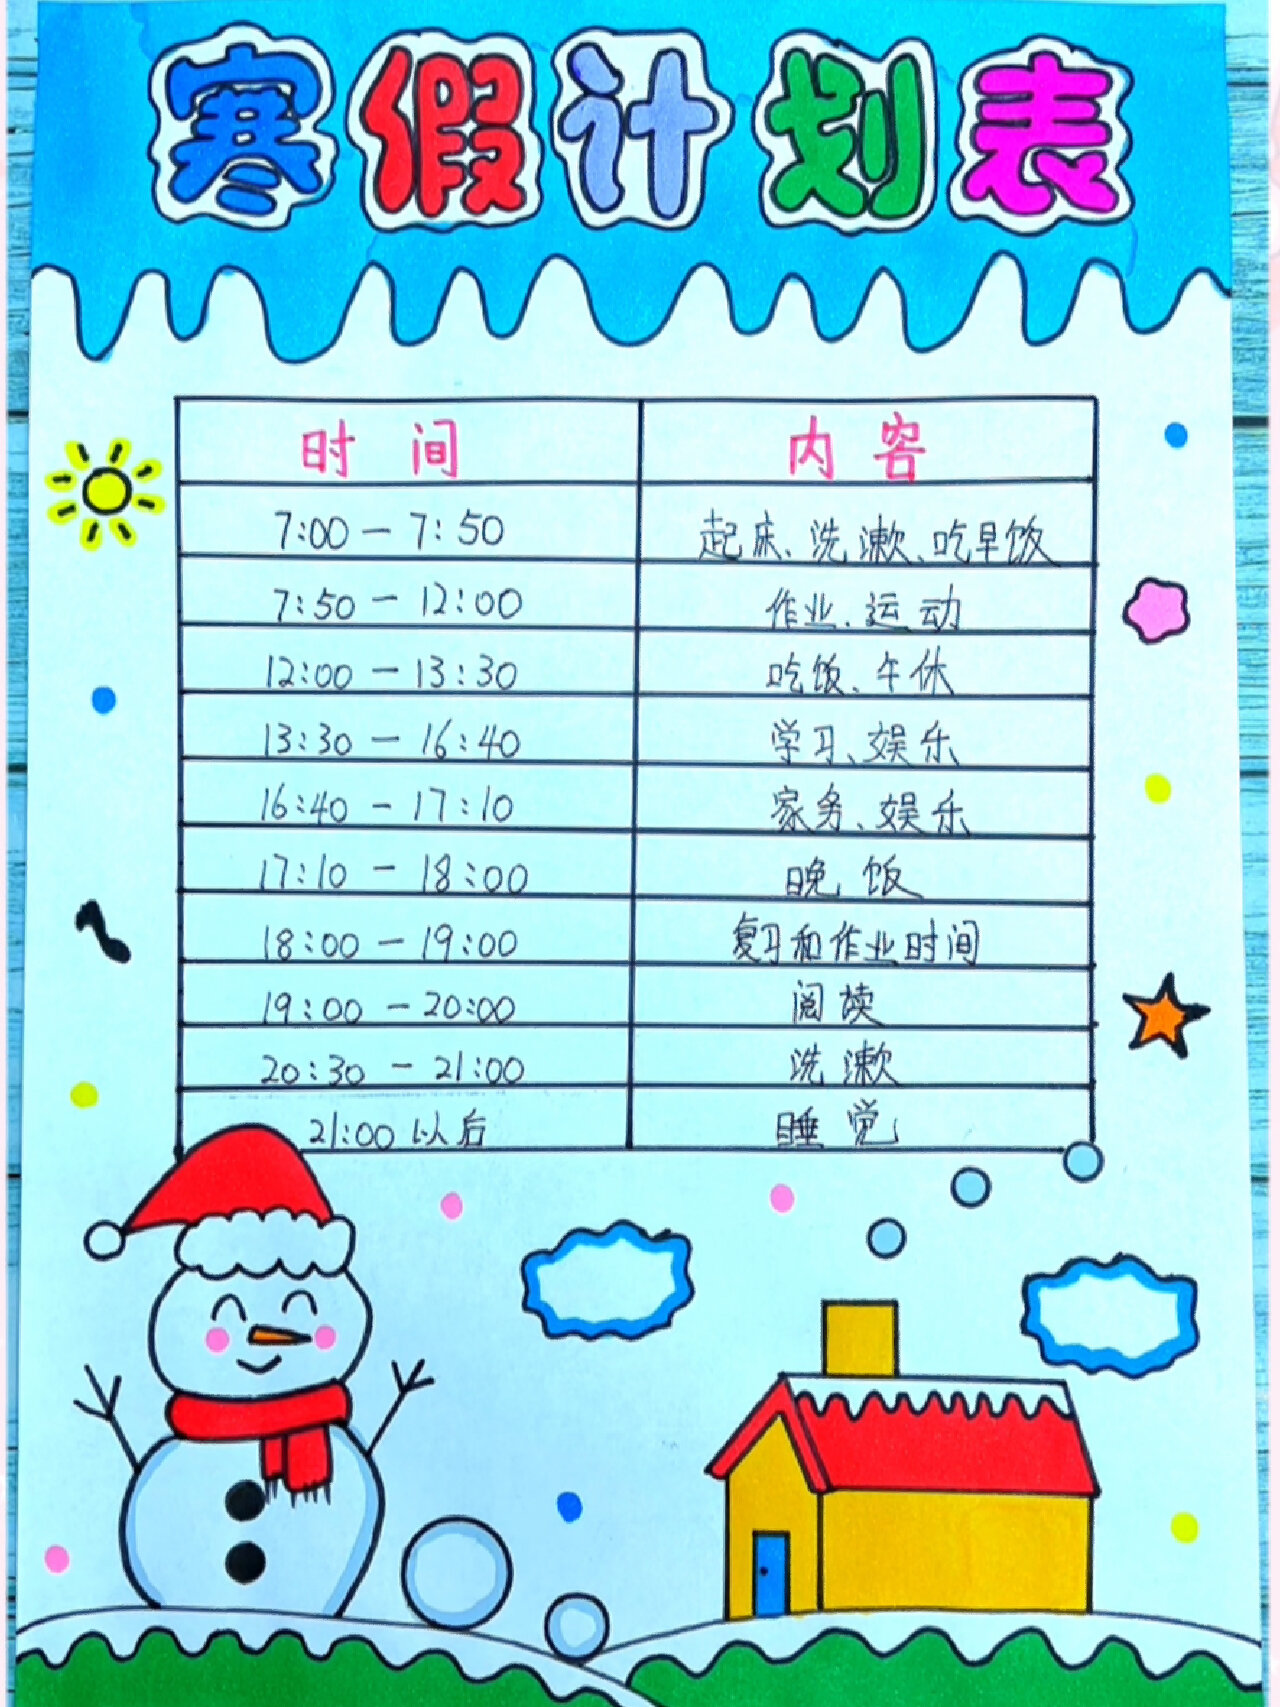 寒假计划表
时间 内容
7:00－7:50 起床、洗漱、吃早饭
7:50－12:00 作业、运动
12:00－13:30 吃饭、午休
13:30－16:40 学习、娱乐
16:40－17:10 家务、娱乐
17:10－18:00 晚饭
18:00－19:00 复习和作业时间
19:00－20:00 阅读
20:30－21:00 洗漱
21:00以后 睡觉